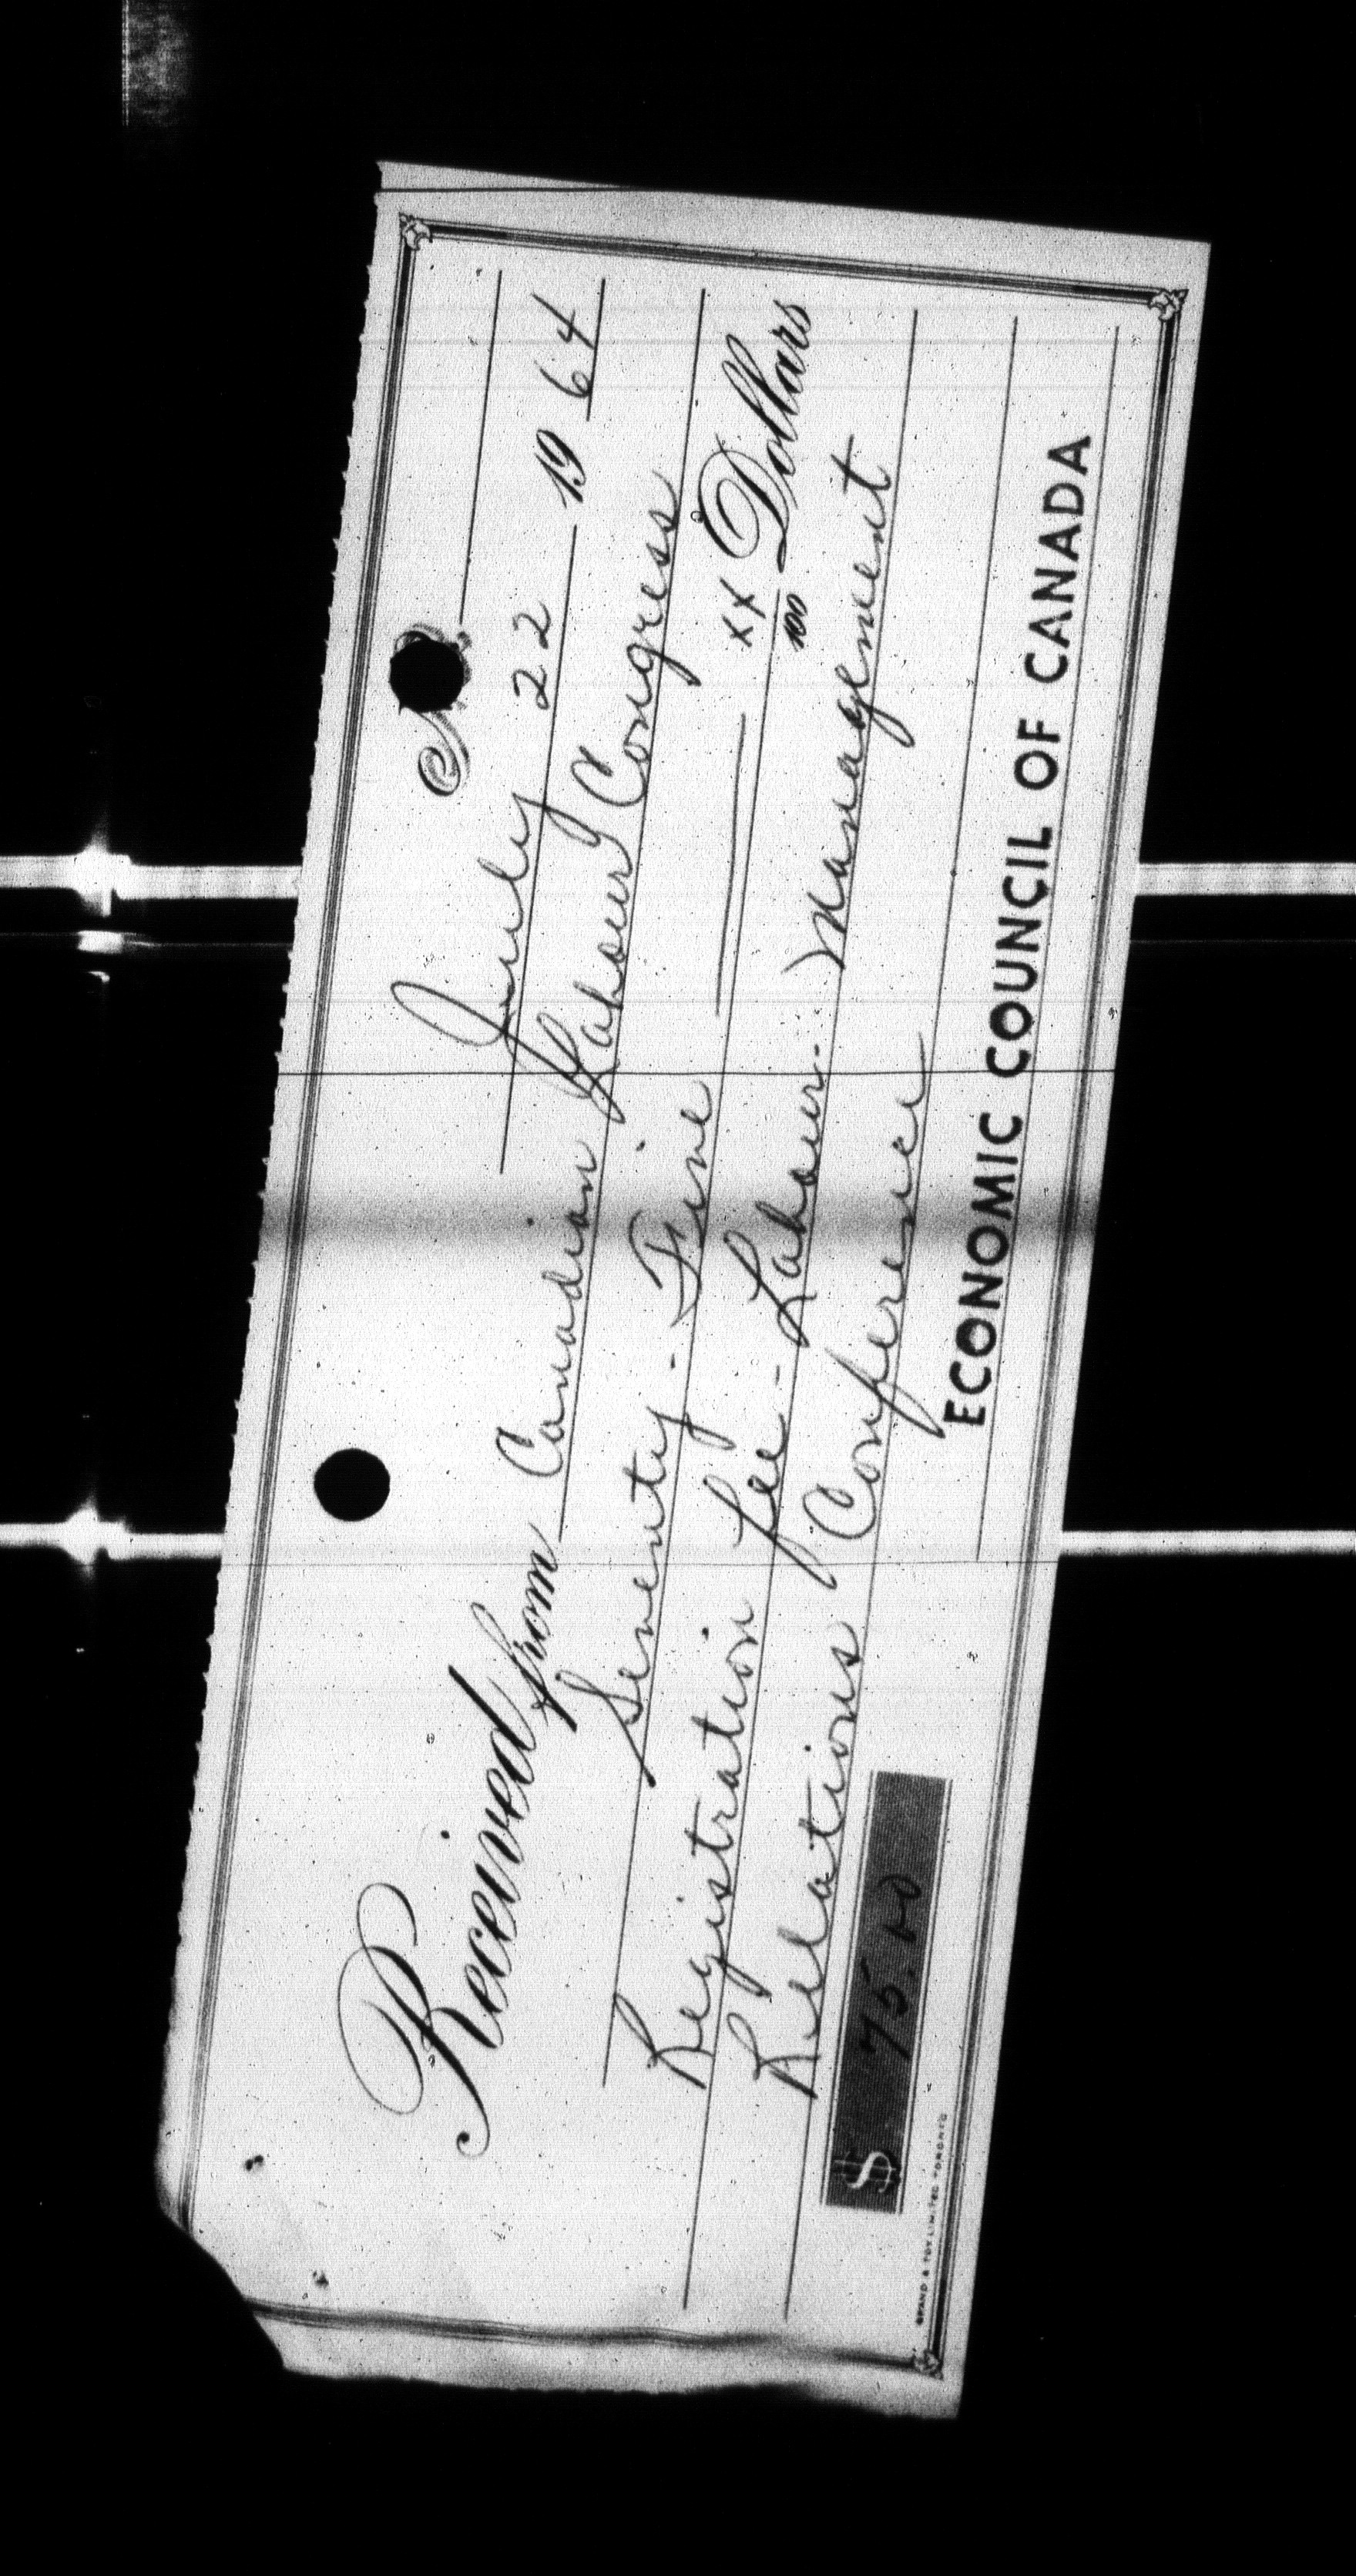 No
July 22 1964
Received from Canadian Labour Congress
Seventy-Five xx/100 Dollars
Registration fee - Labour-Management
Relations Conference
ECONOMIC COUNCIL OF CANADA
$ 75.00
GRAND & TOY LIMITED TORONTO